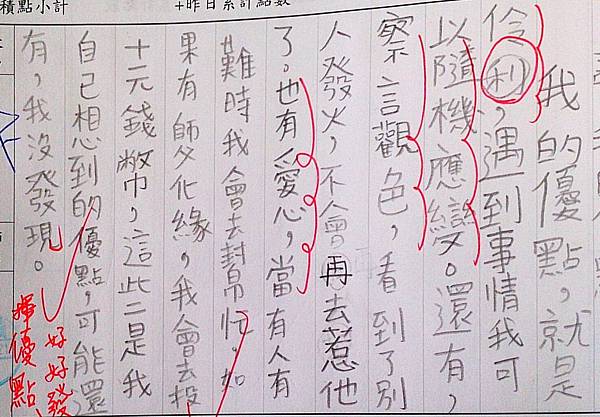 積點小計
+昨日累計點數
我的優點，就是
伶利，遇到事情我可
以隨機應變。還有，
察言觀色，看到了別
人發火，不會再去惹他
了。也有愛心，當有人有
難時我會去幫忙，如
果有師父化緣，我會去投
十元錢幣，這些是我
自己想到的優點，可能還
有，我沒發現。
好好發
揮優點